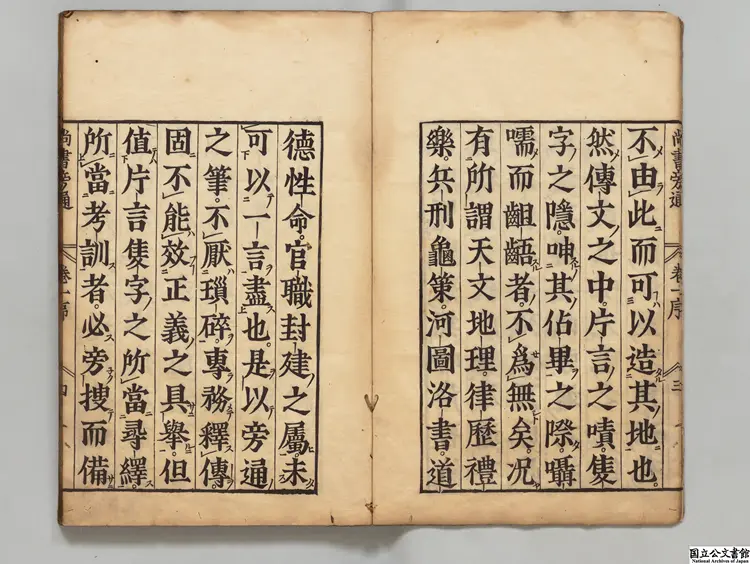 尚書旁通 卷一序 三
不由此而可以造其地也。
然傳文之中片言之嘖隻
字之隱。呻其佔畢之際。囁
嚅而齟齬者。不爲無矣。況
有所謂天文地理。律歷禮
樂。兵刑龜策。河圖洛書。道
德性命。官職封建之屬。未
可以一言盡也。是以旁通
之筆。不厭瑣碎。專務釋傳。
固不能效正義之具舉。但
值片言隻字之所當尋繹。
所當考訓者。必旁搜而備
尚書旁通 卷一序 四
国立公文書館
National Archives of Japan